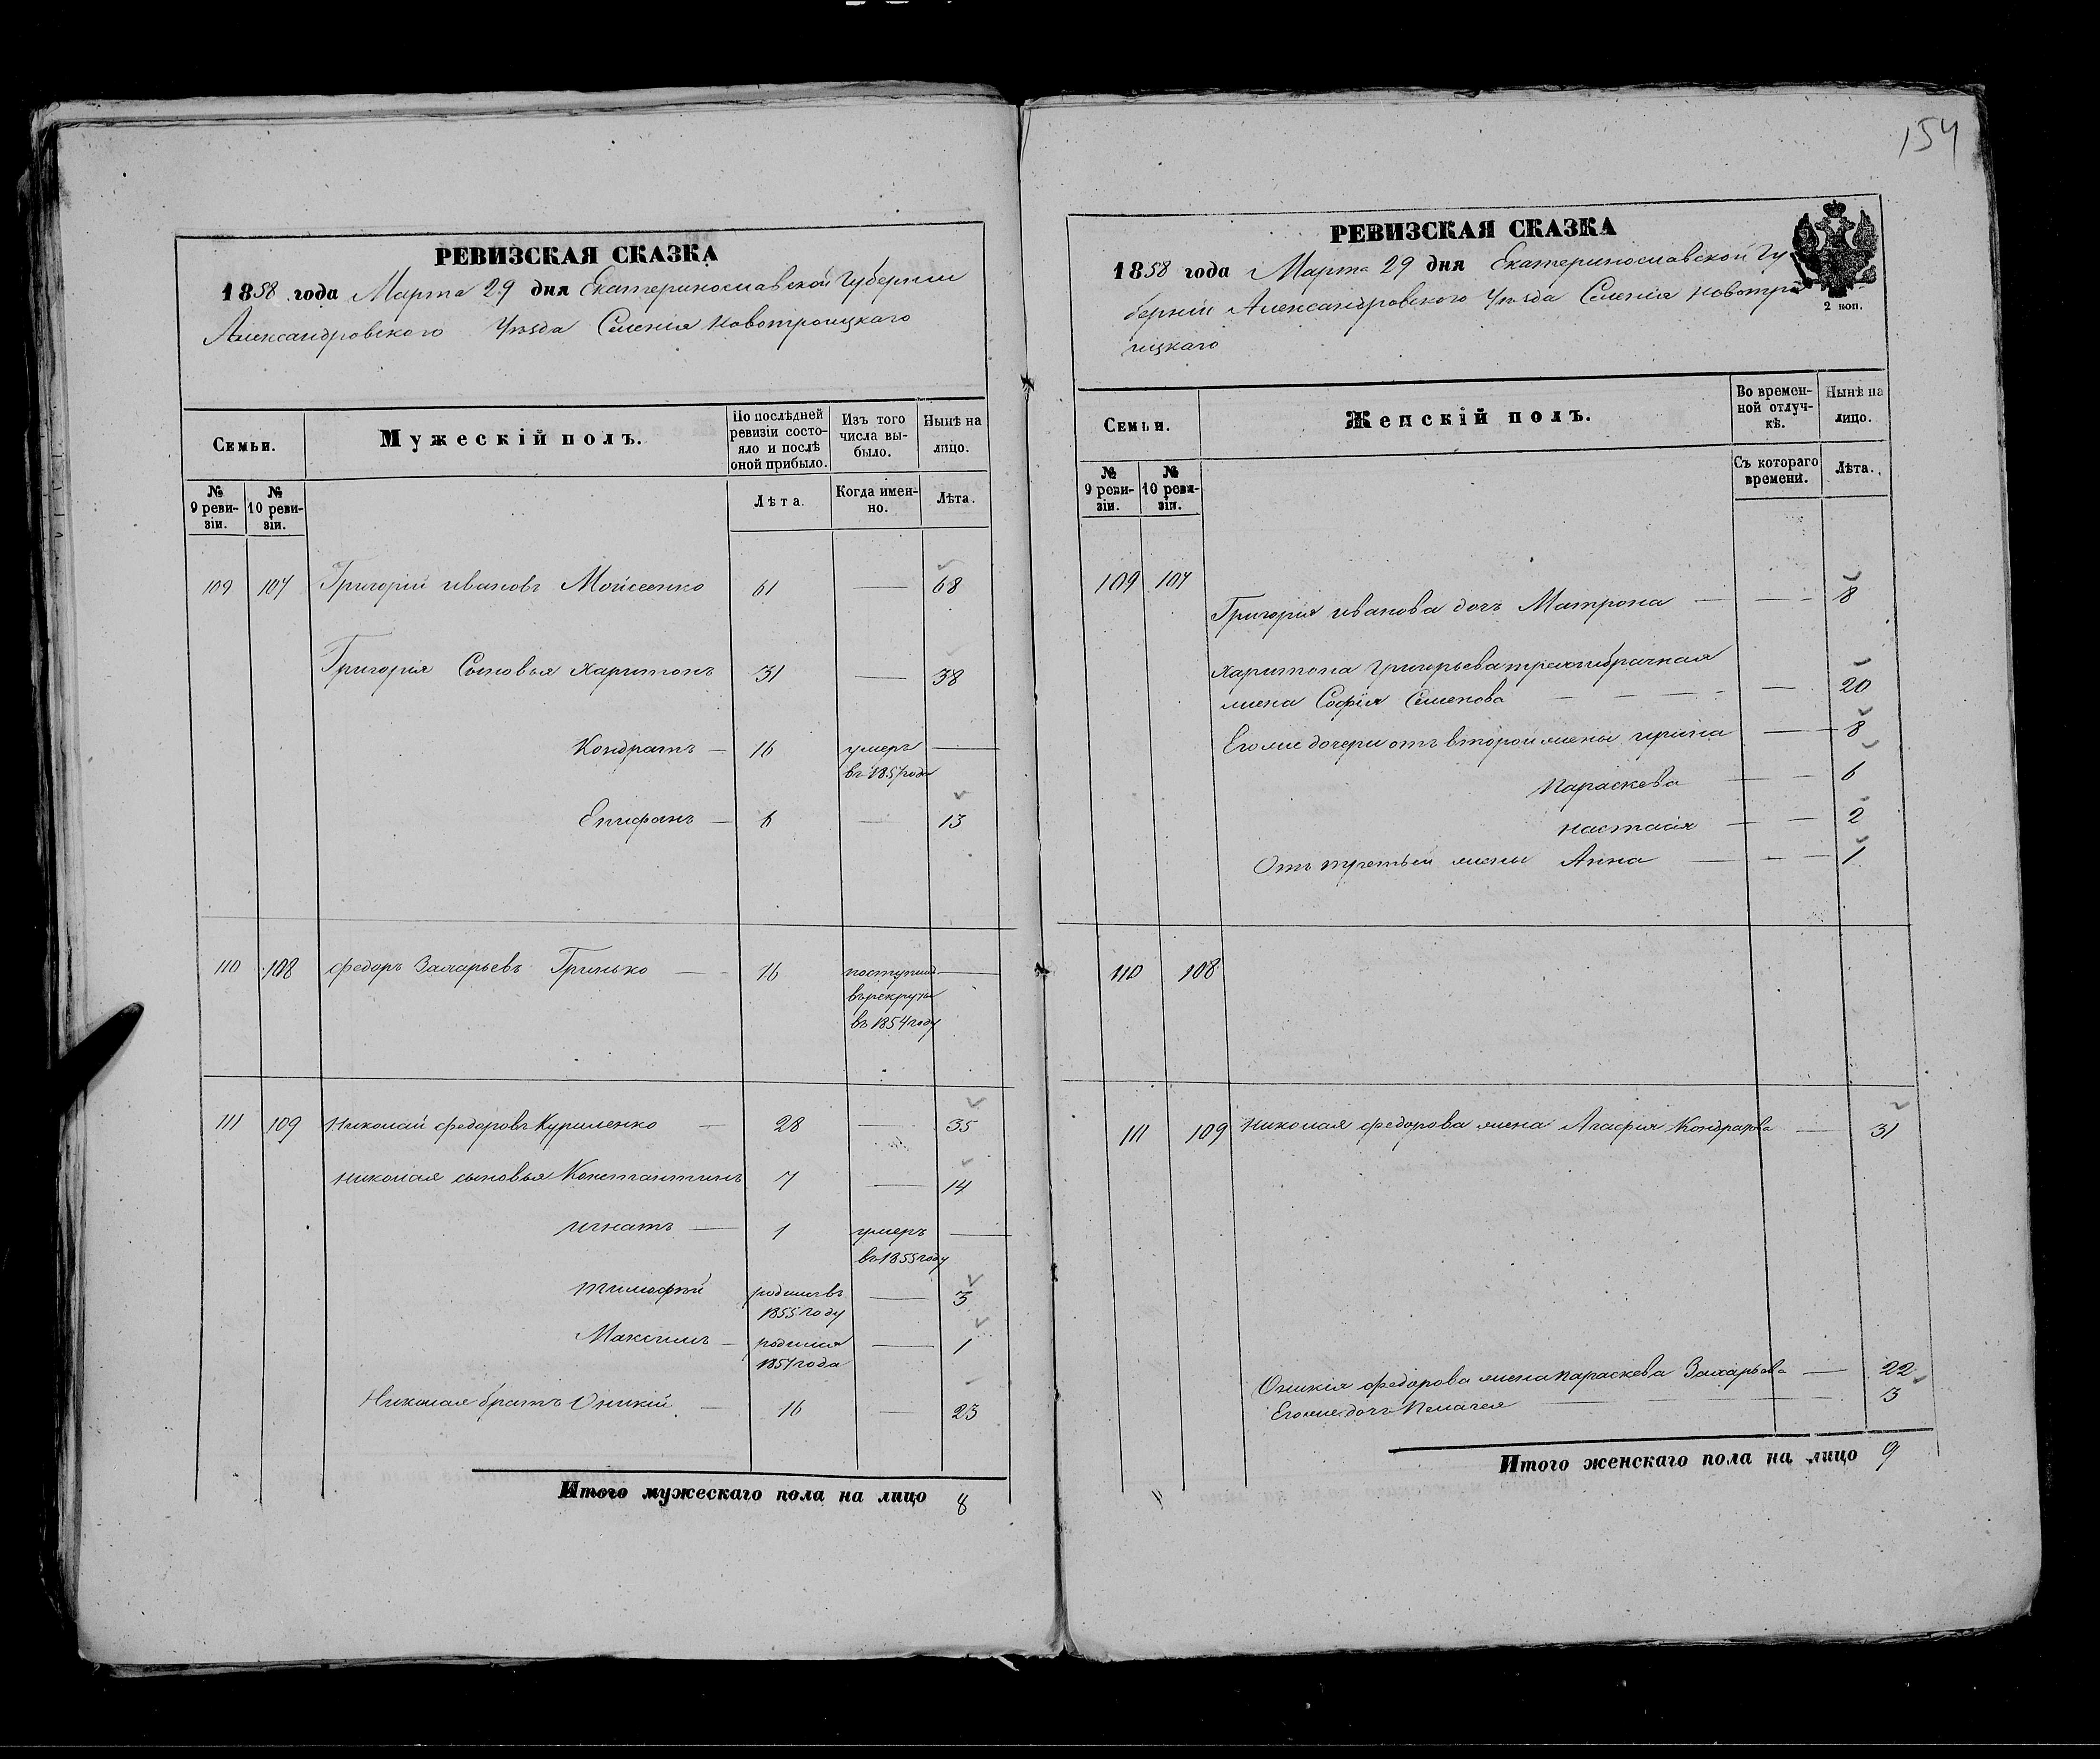 154
РЕВИЗСКАЯ СКАЗКА
1858 года Марта 29 дня Екатеринославской Губернии
Александровского Уѣзда Селенія Новотроицкаго
Семьи.
Мужескій полъ.
По послѣдней ревизіи состояло и послѣ оной прибыло.
Изъ того числа выбыло.
Нынѣ на лицо.
№ 9 ревизіи.
№ 10 ревизіи.
Лѣта.
Когда именно.
Лѣта.
109 107 Григорій Ивановъ Мойсеенко 61 — 68
Григорія Сыновья Харитонъ 31 — 38
Кондратъ — 16 умеръ —
въ 1857 года
Епифанъ — 6 — 13
110 108 Федоръ Захарьевъ Гринько — 16 поступилъ —
въ рекруты
въ 1854 году
111 109 Николай Федоровъ Куриленко — 28 — 35
Николая сыновья Константинъ 7 — 14
Игнатъ — 1 умеръ —
въ 1855 году
Тимофѣй родился въ — 3
1855 году
Максимъ — родился — 1
1857 года
Николая братъ Оникій — 16 — 23
Итого мужескаго пола на лицо 8
РЕВИЗСКАЯ СКАЗКА
1858 года Марта 29 дня Екатеринославской Гу
берніи Александровского Уѣзда Селенія Новотро
ицкаго
2 коп.
Семьи.
Женскій полъ.
Во временной отлучкѣ.
Нынѣ на лицо.
№ 9 ревизіи.
№ 10 ревизіи.
Съ котораго времени.
Лѣта.
109 107
Григорія Иванова дочь Матрона — — 18
Харитона Григорьева третьебрачная
жена Софія Семенова — — 20
Его же дочери отъ второй жены Ирина — 8
Параскева — — 6
Настасія — — 2
Отъ третьей жены Анна — — 1
110 108
111 109 Николая Федорова жена Агафія Кондратова — 31
Оникія Федорова жена Параскева Захарьева — 22
Его же дочь Пелагея — — 3
Итого женскаго пола на лицо 9